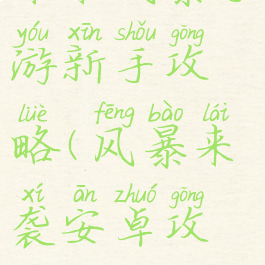 yóu xīn shǒu gōng
游新手攻
lüè fēng bào lái
略(风暴来
xí ān zhuó gōng
袭安卓攻